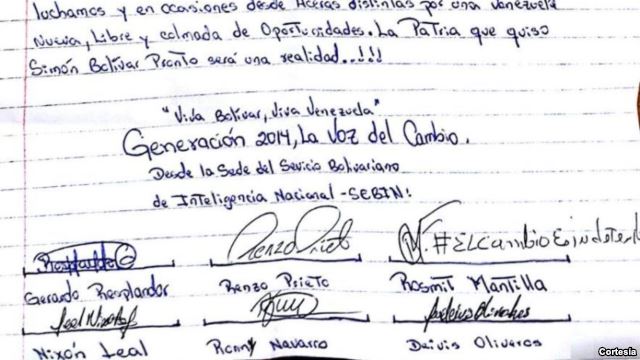 luchamos y en ocasiones desde Aceras distintas por una Venezuela
Nueva, Libre y colmada de Oportunidades. La Patria que quiso
Simón Bolívar Pronto será una realidad..!!!
"Viva Bolívar, Viva Venezuela"
Generación 2014, La Voz del Cambio.
Desde la Sede del Sevicio Bolivariano
de Inteligencia Nacional -SEBIN!
Resplandor Renzo Prieto #ElCambioEs
Gerardo Resplandor Renzo Prieto Rosmit Mantilla
Leal Nixon
Nixón Leal Ronny Navarro Deivis Oliveros
Cortesía